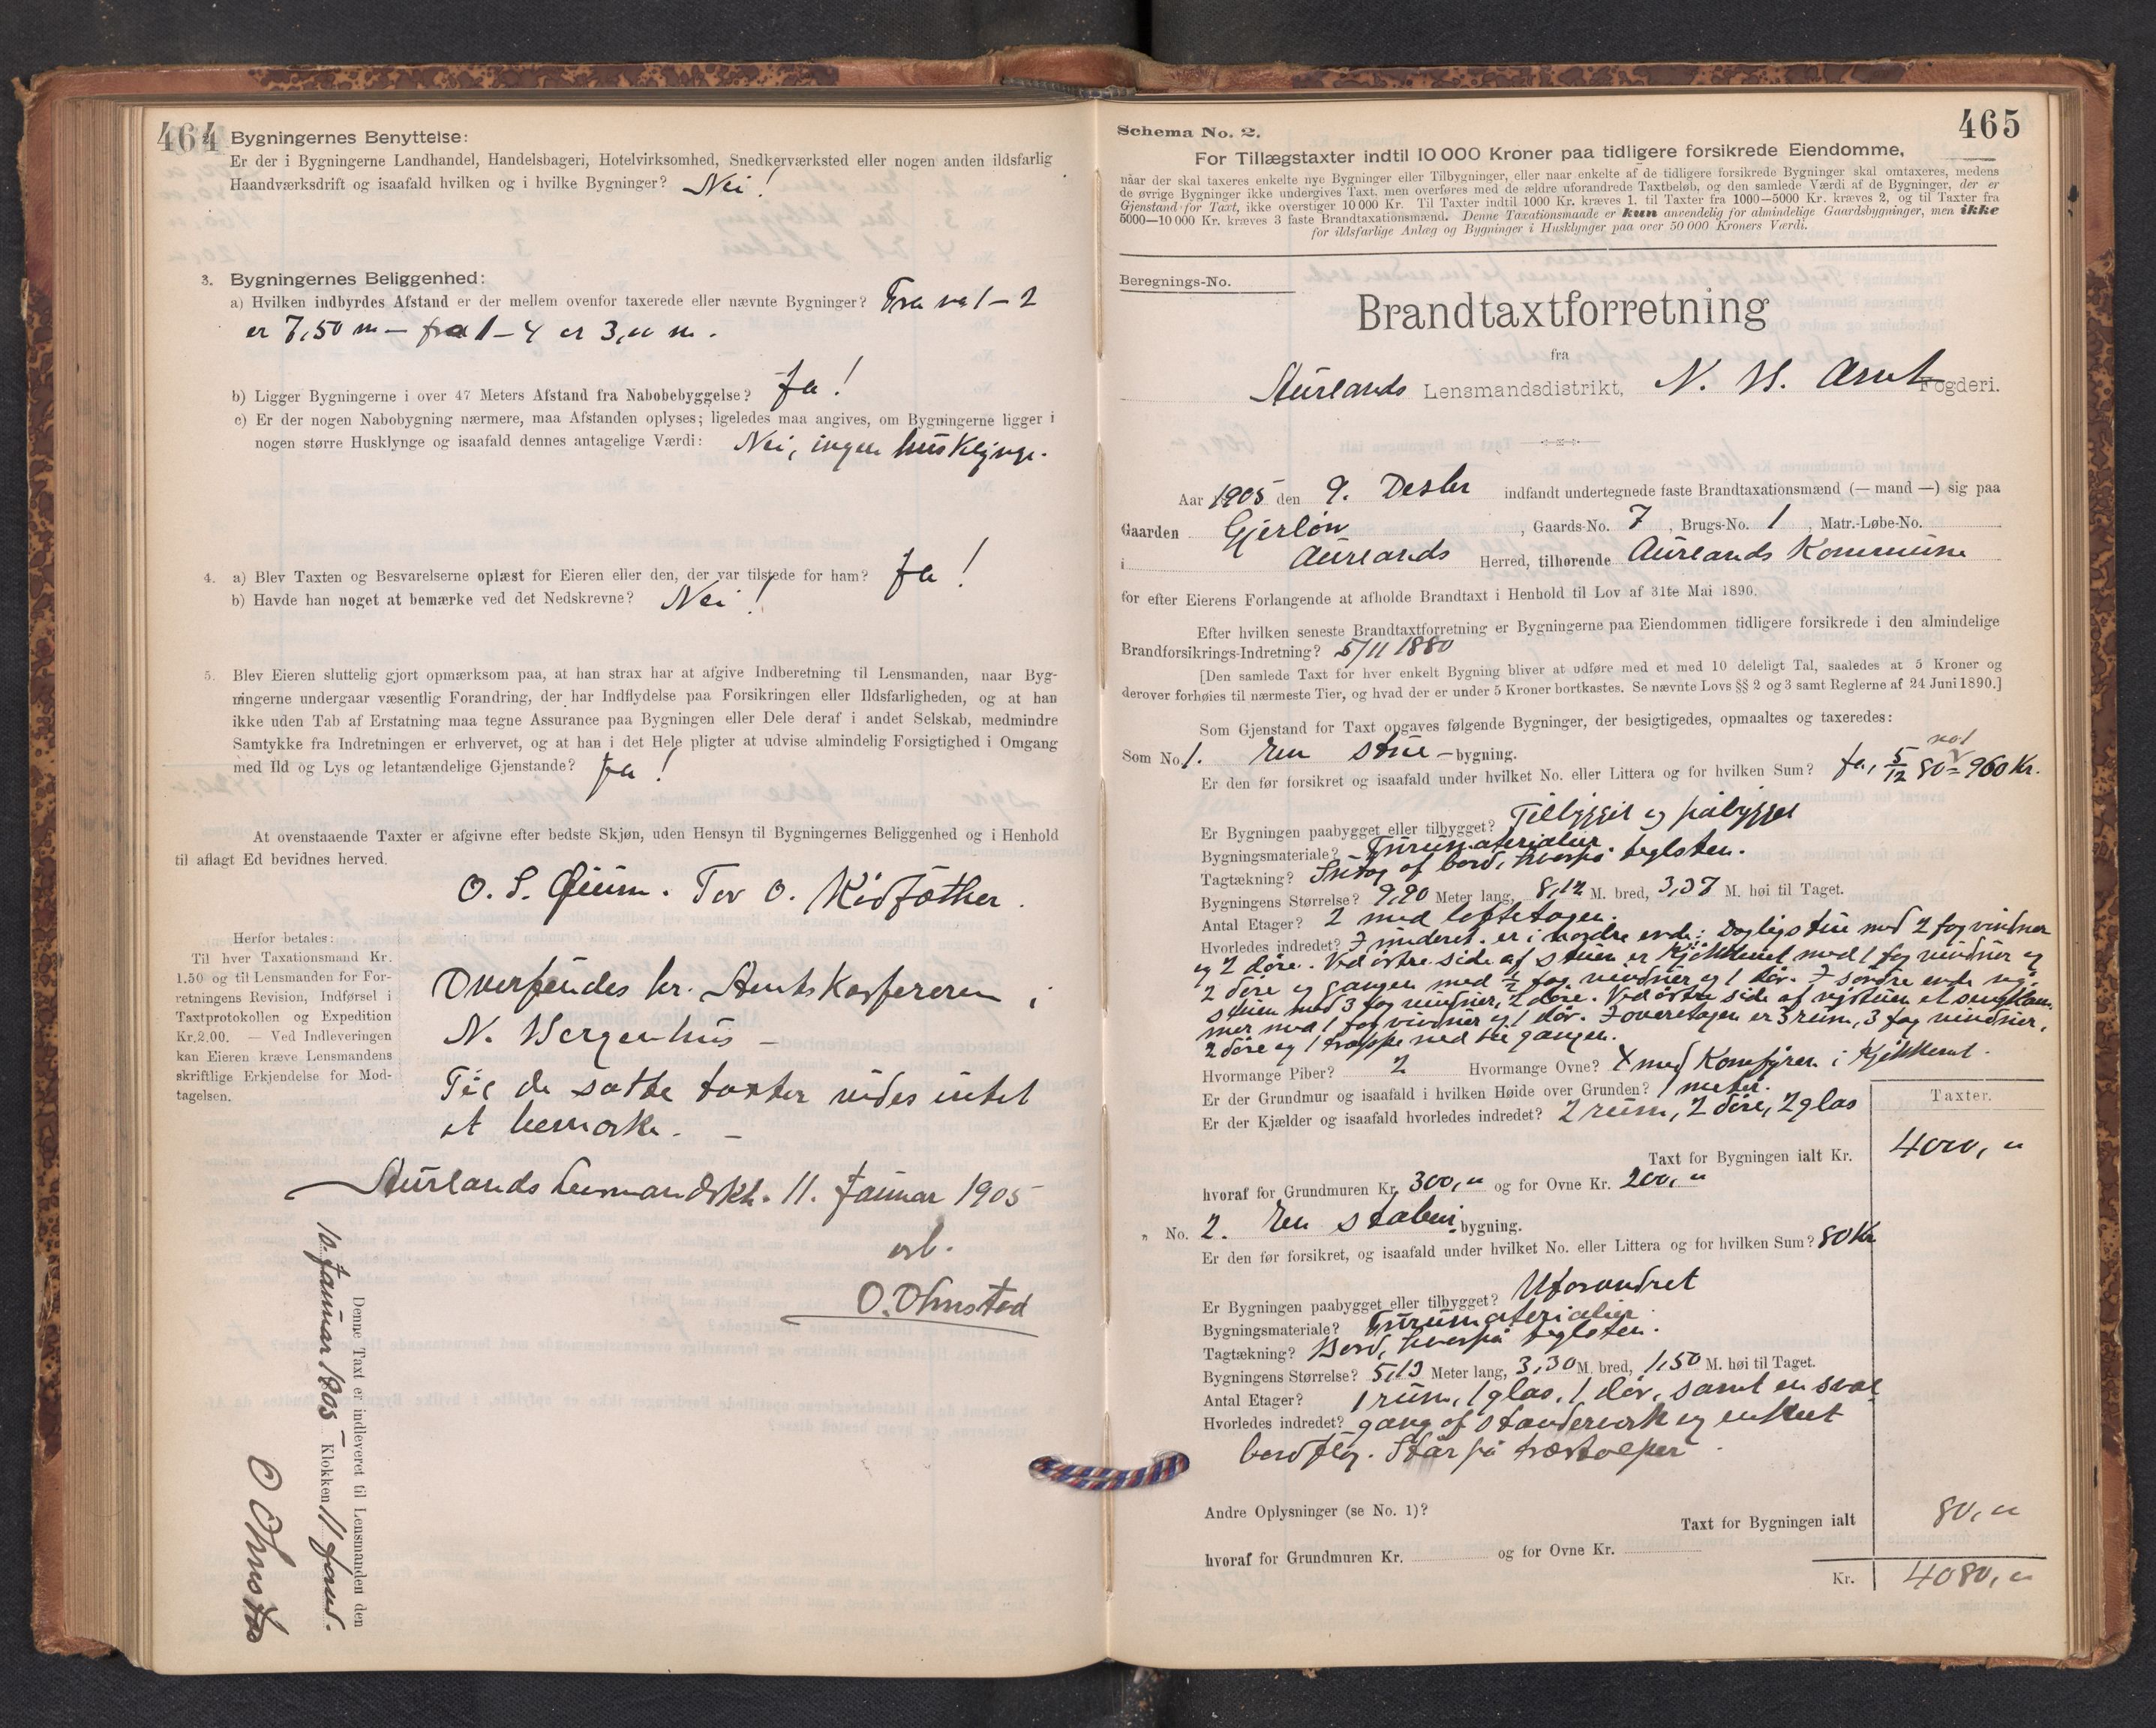 464
Bygningernes Benyttelse:
Er der i Bygningerne Landhandel, Handelsbageri, Hotelvirksomhed, Snedkerværksted eller nogen anden ildsfarlig
Haandværksdrift og isaafald hvilken og i hvilke Bygninger? Nei!
3. Bygningernes Beliggenhed:
a) Hvilken indbyrdes Afstand er der mellem ovenfor taxerede eller nævnte Bygninger? Fra no 1 – 2
er 7,50 m – fra 1 – 4 er 3,00 m.
b) Ligger Bygningerne i over 47 Meters Afstand fra Nabobebyggelse? Ja!
c) Er der nogen Nabobygning nærmere, maa Afstanden oplyses; ligeledes maa angives, om Bygningerne ligger i
nogen større Husklynge og isaafald dennes antagelige Værdi: Nei, ingen husklynge.
4. a) Blev Taxten og Besvarelserne oplæst for Eieren eller den, der var tilstede for ham? Ja!
b) Havde han noget at bemærke ved det Nedskrevne? Nei!
5. Blev Eieren sluttelig gjort opmærksom paa, at han strax har at afgive Indberetning til Lensmanden, naar Byg-
ningerne undergaar væsentlig Forandring, der har Indflydelse paa Forsikringen eller Ildsfarligheden, og at han
ikke uden Tab af Erstatning maa tegne Assurance paa Bygningen eller Dele deraf i andet Selskab, medmindre
Samtykke fra Indretningen er erhvervet, og at han i det Hele pligter at udvise almindelig Forsigtighed i Omgang
med Ild og Lys og letantændelige Gjenstande? Ja!
At ovenstaaende Taxter er afgivne efter bedste Skjøn, uden Hensyn til Bygningernes Beliggenhed og i Henhold
til aflagt Ed bevidnes herved.
O. S. Tor O.
Herfor betales:
Til hver Taxationsmand Kr.
1.50 og til Lensmanden for For-
retningens Revision, Indførsel i
Taxtprotokollen og Expedition
Kr.2.00. — Ved Indleveringen
kan Eieren kræve Lensmandens
skriftlige Erkjendelse for Mod-
tagelsen.
Oversendes hr. Amtskassereren i
N. Bergenhus –
Til de satte taxter vides intet
at bemærke. –
Aurlands lensmandskt. 11. Januar 1905
erb.
O. Ohnstad
Denne Taxt er indleveret til Lensmanden den
10. Januar 1905 Klokken 11 form.
O Ohnstad
465
Schema No. 2.
For Tillægstaxter indtil 10 000 Kroner paa tidligere forsikrede Eiendomme,
naar der skal taxeres enkelte nye Bygninger eller Tilbygninger, eller naar enkelte af de tidligere forsikrede Bygninger skal omtaxeres, medens
de øvrige Bygninger ikke undergives Taxt, men overføres med de ældre uforandrede Taxtbeløb, og den samlede Værdi af de Bygninger, der er
Gjenstand for Taxt, ikke overstiger 10 000 Kr. Til Taxter indtil 1000 Kr. kræves 1, til Taxter fra 1000—5000 Kr. kræves 2, og til Taxter fra
5000—10 000 Kr. kræves 3 faste Brandtaxationsmænd. Denne Taxationsmaade er kun anvendelig for almindelige Gaardsbygninger, men ikke
for ildsfarlige Anlæg og Bygninger i Husklynger paa over 50 000 Kroners Værdi.
Beregnings-No.
Brandtaxtforretning
fra
Aurlands Lensmandsdistrikt, N. B. Amt Fogderi.
Aar 1905 den 9. Desbr indfandt undertegnede faste Brandtaxationsmænd (— mand —) sig paa
Gaarden Gjerløn, Gaards-No. 7, Brugs-No. 1, Matr.-Løbe-No.
i Aurlands Herred, tilhørende Aurlands Kommune
for efter Eierens Forlangende at afholde Brandtaxt i Henhold til Lov af 31te Mai 1890.
Efter hvilken seneste Brandtaxtforretning er Bygningerne paa Eiendommen tidligere forsikrede i den almindelige
Brandforsikrings-Indretning? 5/11 1880
[Den samlede Taxt for hver enkelt Bygning bliver at udføre med et med 10 deleligt Tal, saaledes at 5 Kroner og
derover forhøies til nærmeste Tier, og hvad der er under 5 Kroner bortkastes. Se nævnte Lovs §§ 2 og 3 samt Reglerne af 24 Juni 1890.]
Som Gjenstand for Taxt opgaves følgende Bygninger, der besigtigedes, opmaaltes og taxeredes:
Som No 1. En stue-bygning.
no 1
Er den før forsikret og isaafald under hvilket No. eller Littera og for hvilken Sum? Ja, 5/12 80 = 960 Kr.
Er Bygningen paabygget eller tilbygget? Tilbygget og påbygget
Bygningsmateriale? Furumaterialier.
Tagtækning? af bord, hvorpå teglsten.
Bygningens Størrelse? 9,90 Meter lang, 8,12 M. bred, 3,37 M. høi til Taget.
Antal Etager? 2 med loftetagen.
Hvorledes indredet? I underet. er i nordre ende: Dagligstue med 2 fag vinduer
og 2 døre. Ved østre side af stuen er kjøkkenet med 1 fag vinduer og
2 døre og gangen med ½ fag vinduer og 1 dør. I søndre ende ny-
stuen med 3 fag vinduer, 2 døre. Ved østre side af nystuen et sengkam-
mer med 1 fag vinduer og 1 dør. I overetagen er 3 rum, 3 fag vinduer,
2 døre og 1 trappe ned til gangen.
Hvormange Piber? 2 Hvormange Ovne? 4 med Komfyren i Kjøkkenet.
Er der Grundmur og isaafald i hvilken Høide over Grunden? 1 meter.
Er der Kjælder og isaafald hvorledes indredet? 2 rum, 2 døre, 2 glas
Taxter.
Taxt for Bygningen ialt Kr. 4000,"
hvoraf for Grundmuren Kr. 300," og for Ovne Kr. 200,"
" No. 2. En stabur bygning.
Er den før forsikret, og isaafald under hvilket No. eller Littera og for hvilken Sum? 80 Kr
Er Bygningen paabygget eller tilbygget? Uforandret
Bygningsmateriale? Furumaterialier.
Tagtækning? Bord, hvorpå teglsten.
Bygningens Størrelse? 5,13 Meter lang, 3,30 M. bred, 1,50 M. høi til Taget.
Antal Etager? 1 rum, 1 glas, 1 dør, samt en sval
Hvorledes indredet? gang af standerverk og enkelt
bord Står på træstolper.
Andre Oplysninger (se No. 1)?
Taxt for Bygningen ialt 80,"
hvoraf for Grundmuren Kr. og for Ovne Kr.
Kr. 4080,"